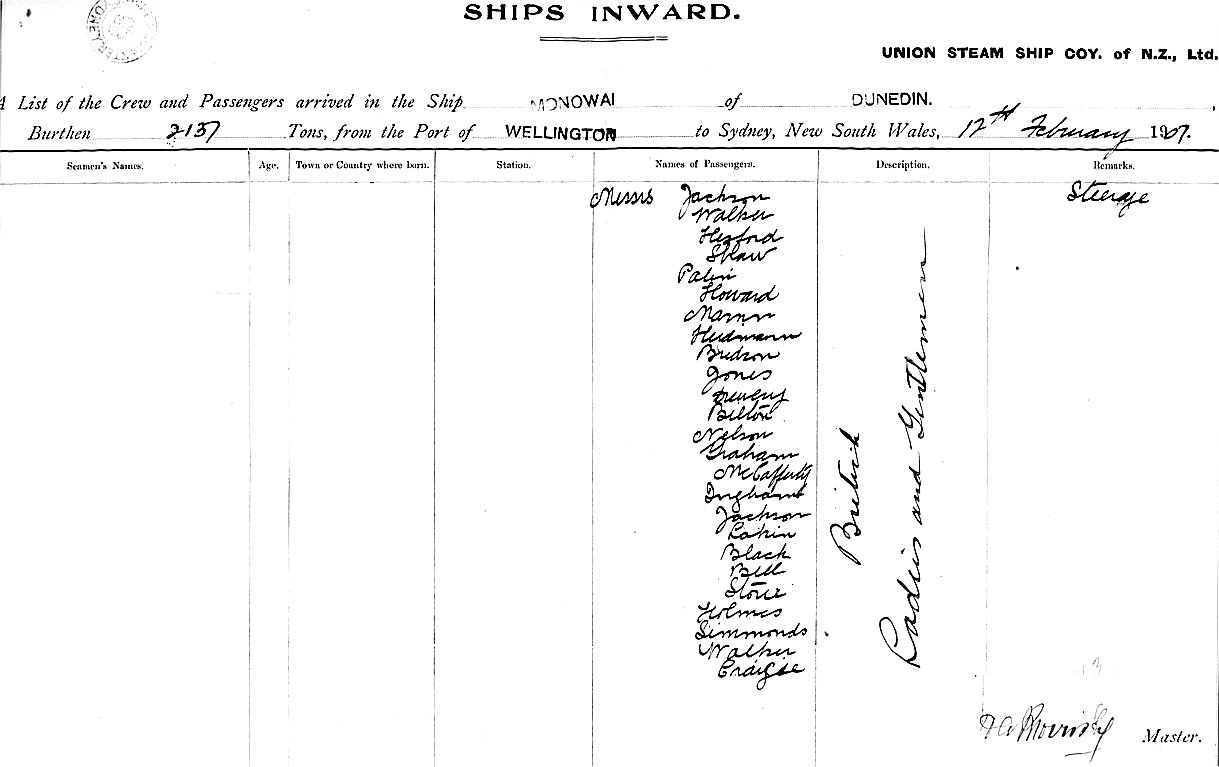 SHIPS INWARD.
UNION STEAM SHIP COY. of N.Z., Ltd.
A List of the Crew and Passengers arrived in the Ship MONOWAI of DUNEDIN.,
Burthen 2137 Tons, from the Port of WELLINGTON to Sydney, New South Wales, 12th February 1907.
Seamen's Names. Age. Town or Country where born. Station. Names of Passengers. Description. Remarks.
Messrs Jackson Steerage
Walker
Hesford
Shaw
Palin
Howard
Heidmann
Bridson
Jones
Bilton
Nelson
Graham
McCafferty
Ingham
Jackson
Lakin
Black
Bell
Stone
Holmes
Simmonds
Walker
Craigie
British
Ladies and Gentlemen
Master.